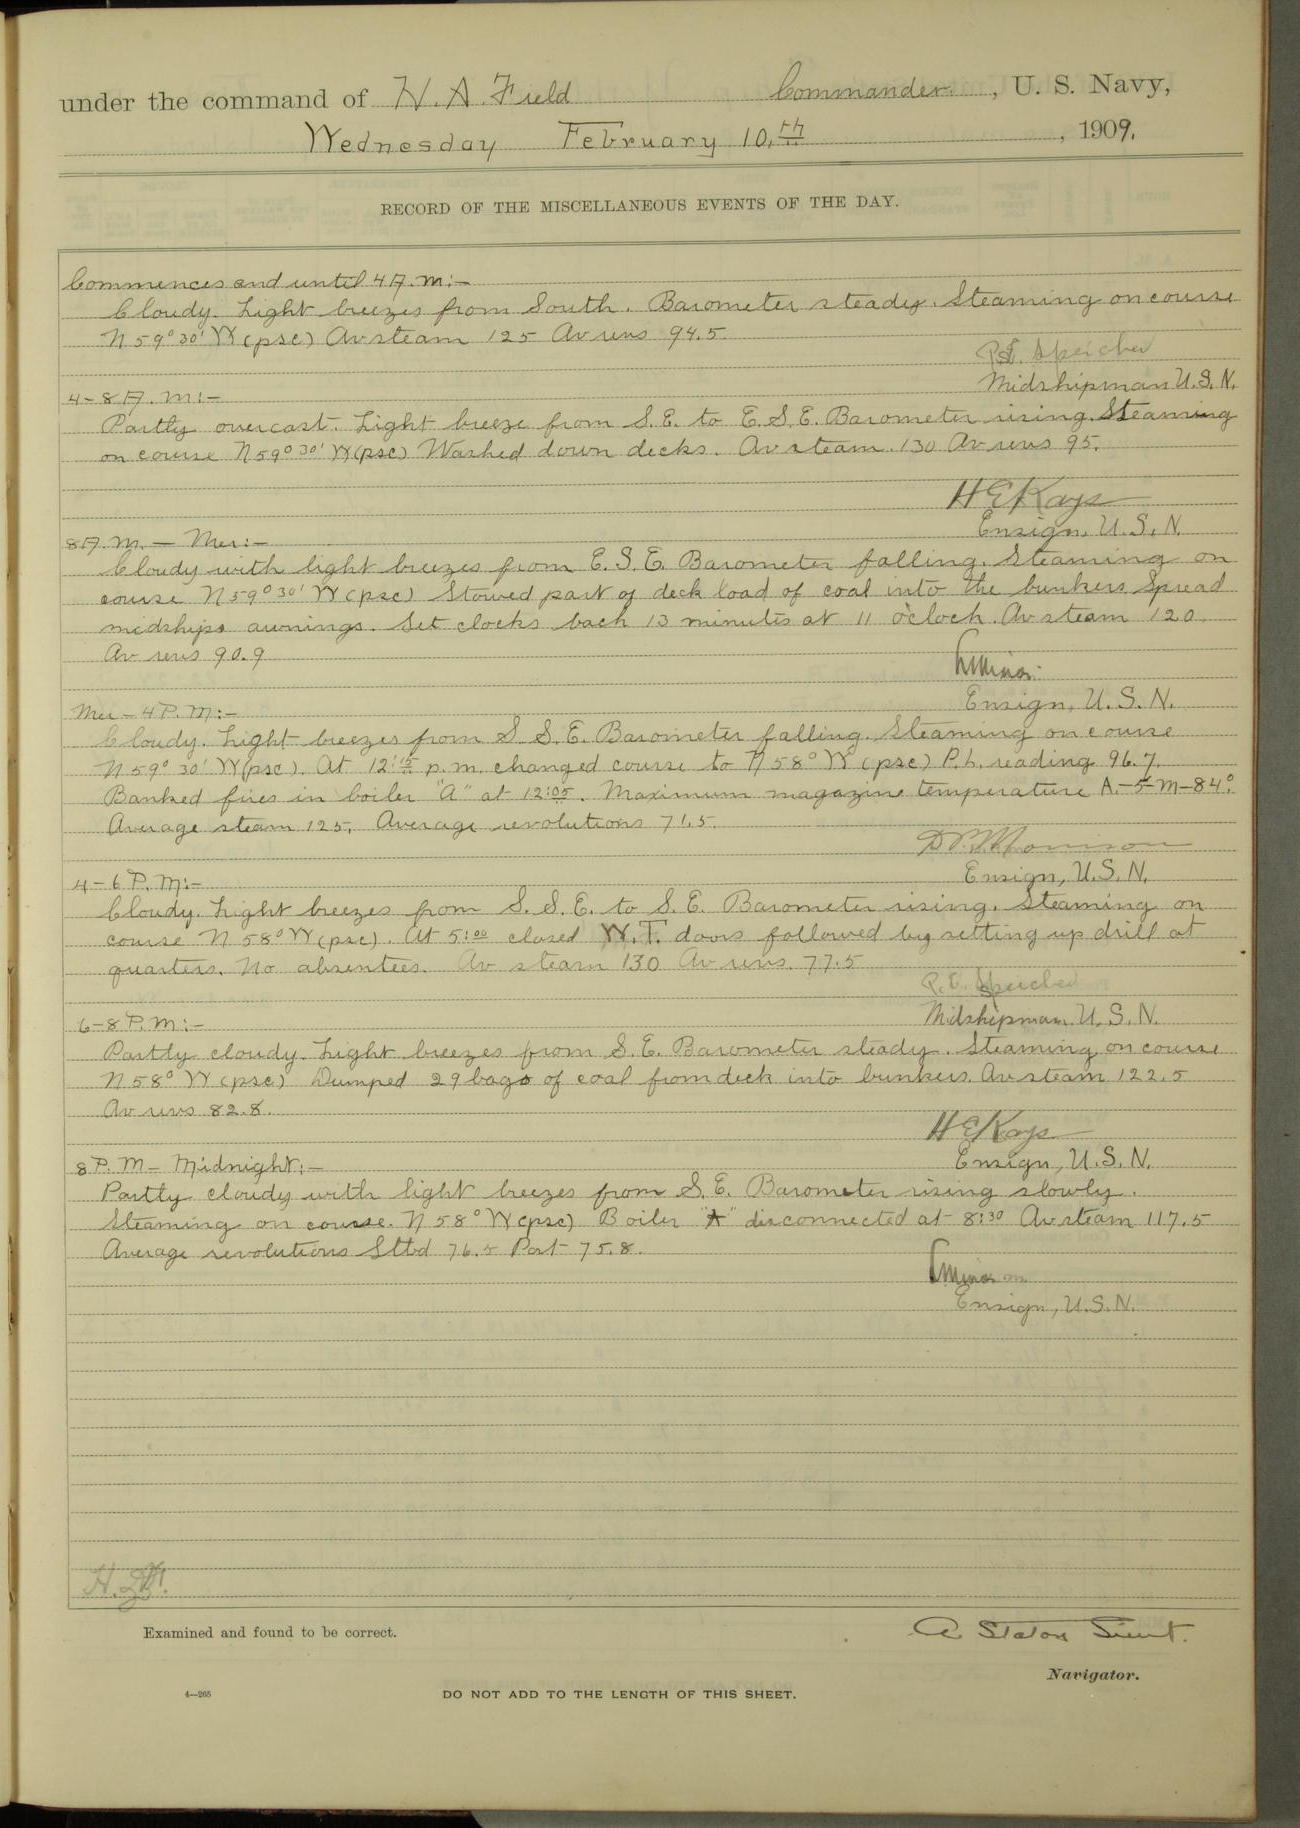 under the command of H. A. Field Commander, U. S. Navy,
Wednesday February 10,th, 1909.
RECORD OF THE MISCELLANEOUS EVENTS OF THE DAY.
Commences and until 4 A.M:-
Cloudy. Light breezes from South. Barometer steady. Steaming on course
N 59° 30' W (psc) Av steam 125 Av revs 94.5.
P.E. Speicher
Midshipman U.S.N.
4-8 A.M:-
Partly overcast. Light breeze from S.E. to E.S.E. Barometer rising. Steaming
on course N 59° 30' W (psc) Washed down decks. Av steam. 130 Av revs 95.
H E Kays
Ensign, U.S.N.
8 A.M. - Mer:-
Cloudy with light breezes from E.S.E. Barometer falling. Steaming on
course N 59° 30' W (psc) Stowed part of deck load of coal into the bunkers. Spread
midships awnings. Set clocks back 13 minutes at 11 o'clock. Av steam 120.
Av revs 90.9
Ensign, U.S.N.
Mer - 4 P.M:-
Cloudy. Light breezes from S.S.E. Barometer falling. Steaming on course
N 59° 30' W (psc). At 12:15 p.m. changed course to N 58° W (psc) P.L. reading 96.7.
Banked fires in boiler "A" at 12:05. Maximum magazine temperature A.-5-M-84°.
Average steam 125, Average revolutions 71.5.
Morrison
Ensign, U.S.N.
4-6 P.M:-
Cloudy. Light breezes from S.S.E. to S.E. Barometer rising. Steaming on
course N 58° W (psc). At 5:00 closed W.T. doors followed by setting up drill at
quarters. No absentees. Av steam 130 Av revs. 77.5
P.E. Speicher
Midshipman U.S.N.
6-8 P.M:-
Partly cloudy. Light breezes from S.E. Barometer steady. Steaming on course
N 58° W (psc) Dumped 29 bags of coal from deck into bunkers. Av steam 122.5
Av revs 82.8.
H E Kays
Ensign, U.S.N.
8 P.M - Midnight:-
Partly cloudy with light breezes from S.E. Barometer rising slowly.
Steaming on course. N 58° W (psc) Boiler "A" disconnected at 8:30 Av steam 117.5
Average revolutions Stbd 76.5 Port 75.8.
Ensign, U.S.N.
Examined and found to be correct.
A Staton Lieut.
Navigator.
4-265
DO NOT ADD TO THE LENGTH OF THIS SHEET.